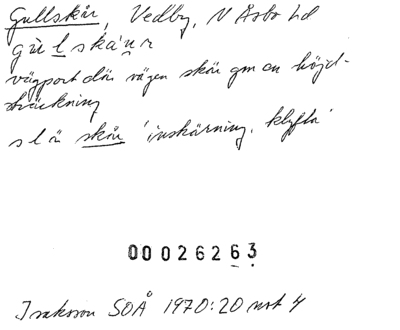 Gullskår, Vedby, N Åsbo hd
gùlskå'nr
vägport där vägen skär gm en höjd-
sträckning
slä skår 'inskärning, klyfta'
00026263
Isaksson SOÅ 1970:20 not 4